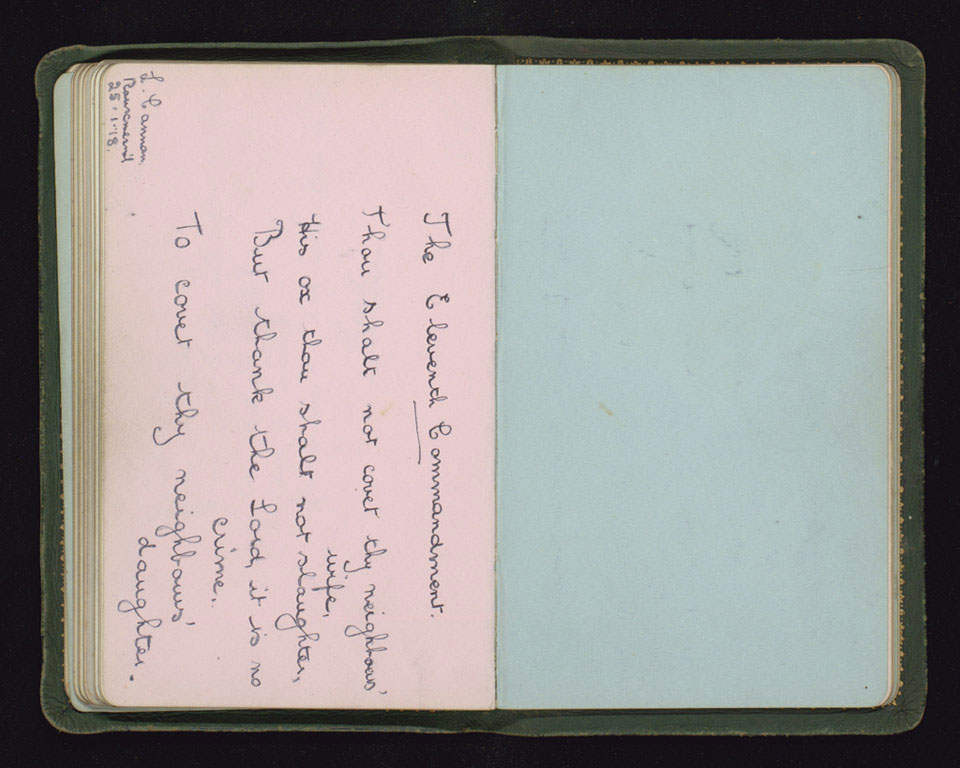 The Eleventh Commandment.
Thou shalt not covet thy neighbours'
wife,
His ox thou shalt not slaughter,
But thank the Lord, it is no
crime.
To covet thy neighbours'
daughter.
L. Cannan,
25.1.18.